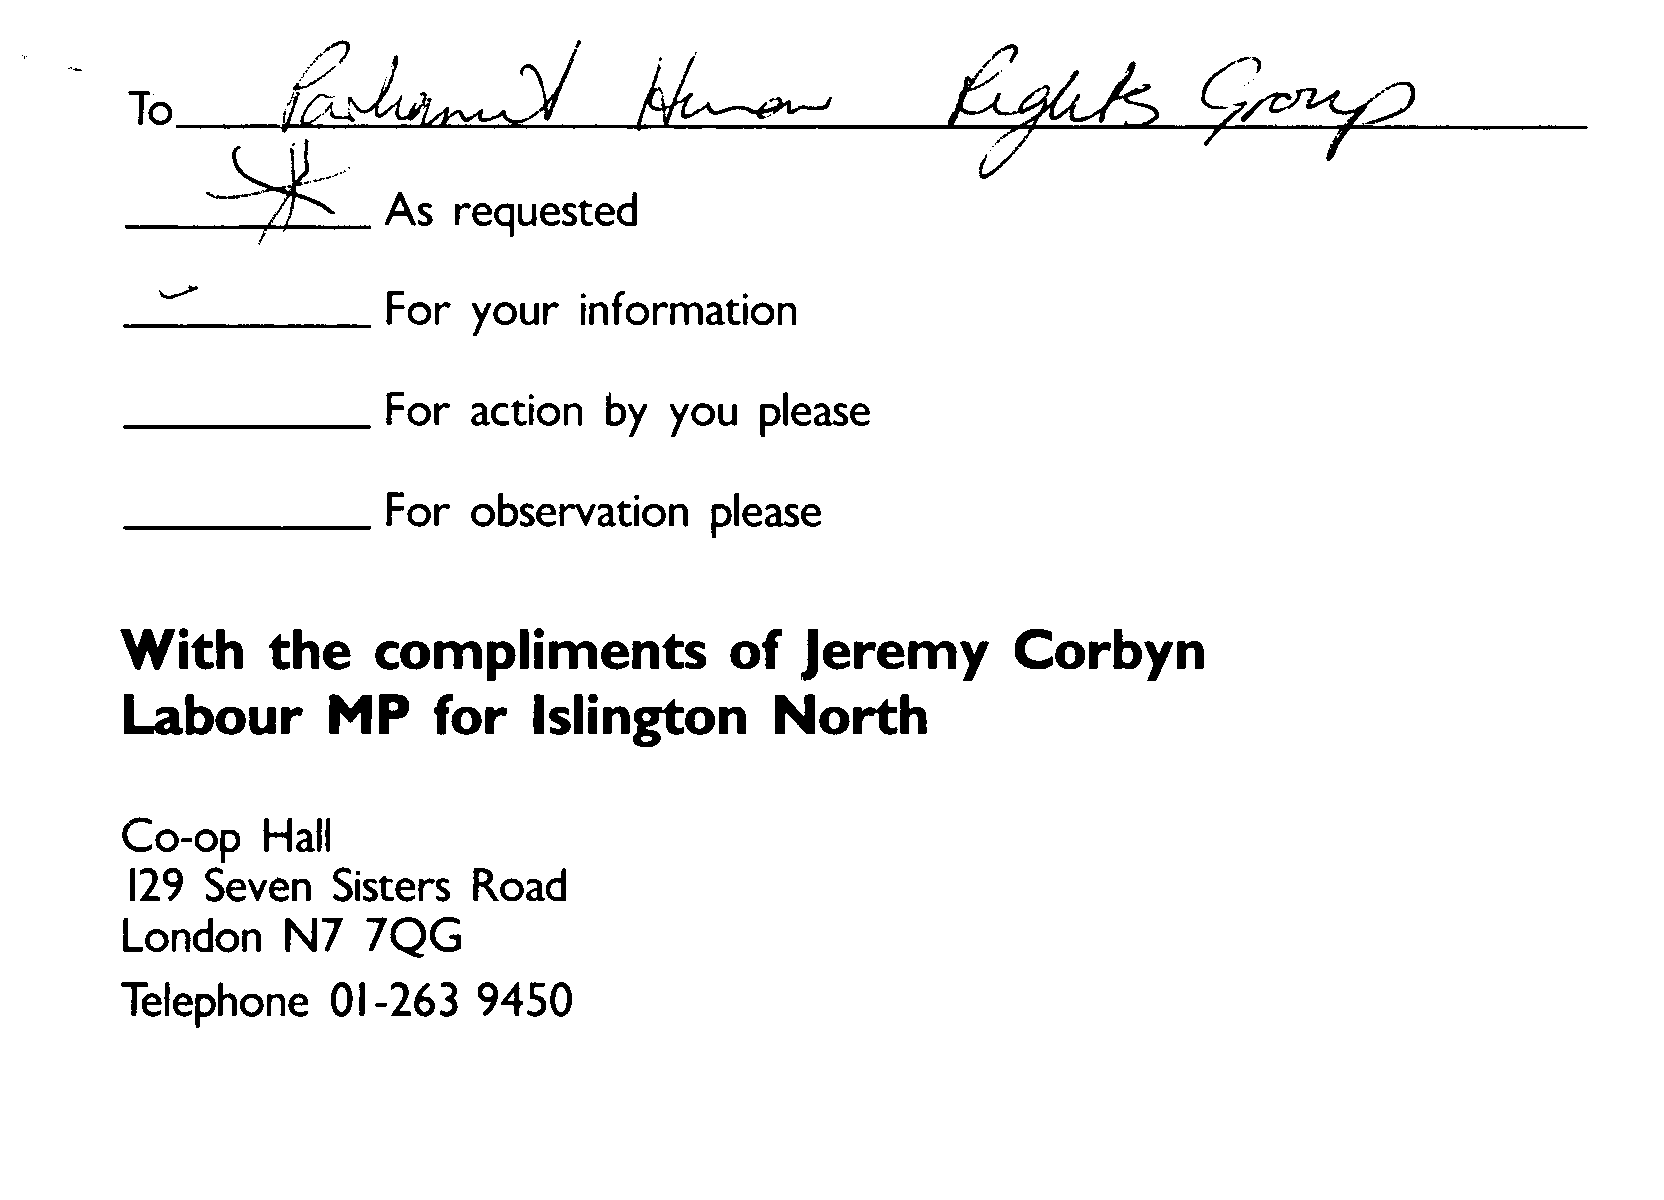 To Parliament Human Rights Group
As requested
✓ For your information
For action by you please
For observation please
With the compliments of Jeremy Corbyn
Labour MP for Islington North
Co-op Hall
129 Seven Sisters Road
London N7 7QG
Telephone 01-263 9450